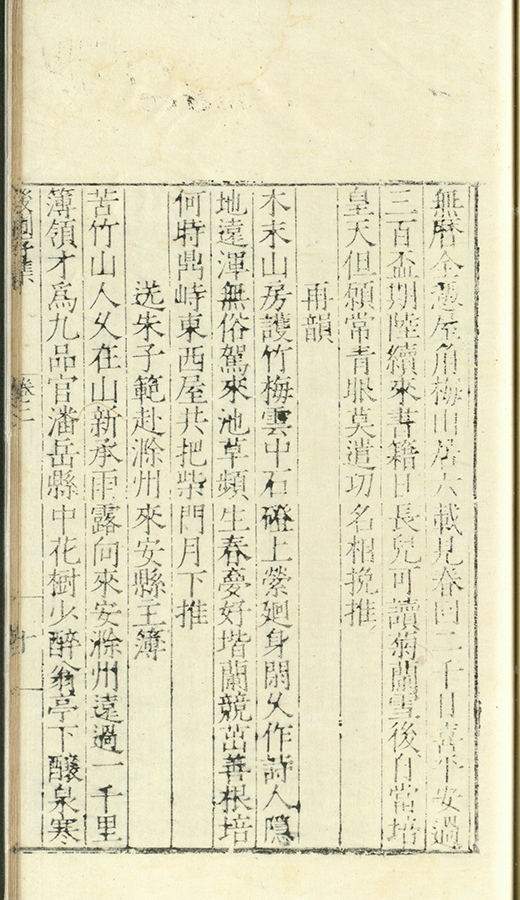 無曆全憑屋角梅山居六載見春回二千日喜平安過
三百盃期陸續來書籍日長兒可讀菊蘭雪後自當培
皇天但願常青眼莫遣功名相挽推
再韻
木末山房護竹梅雲中石磴上縈廻身閑久作詩人隱
地遠渾無俗駕來池草頻生春夢好堦蘭競茁善根培
何時峙東西屋共把柴門月下推
送朱子範赴滁州來安縣主簿
苦竹山人久在山新承雨露向來安滁州遠過一千里
簿領才為九品官潘岳縣中花樹少醉翁亭下釀泉寒
集
卷二
十